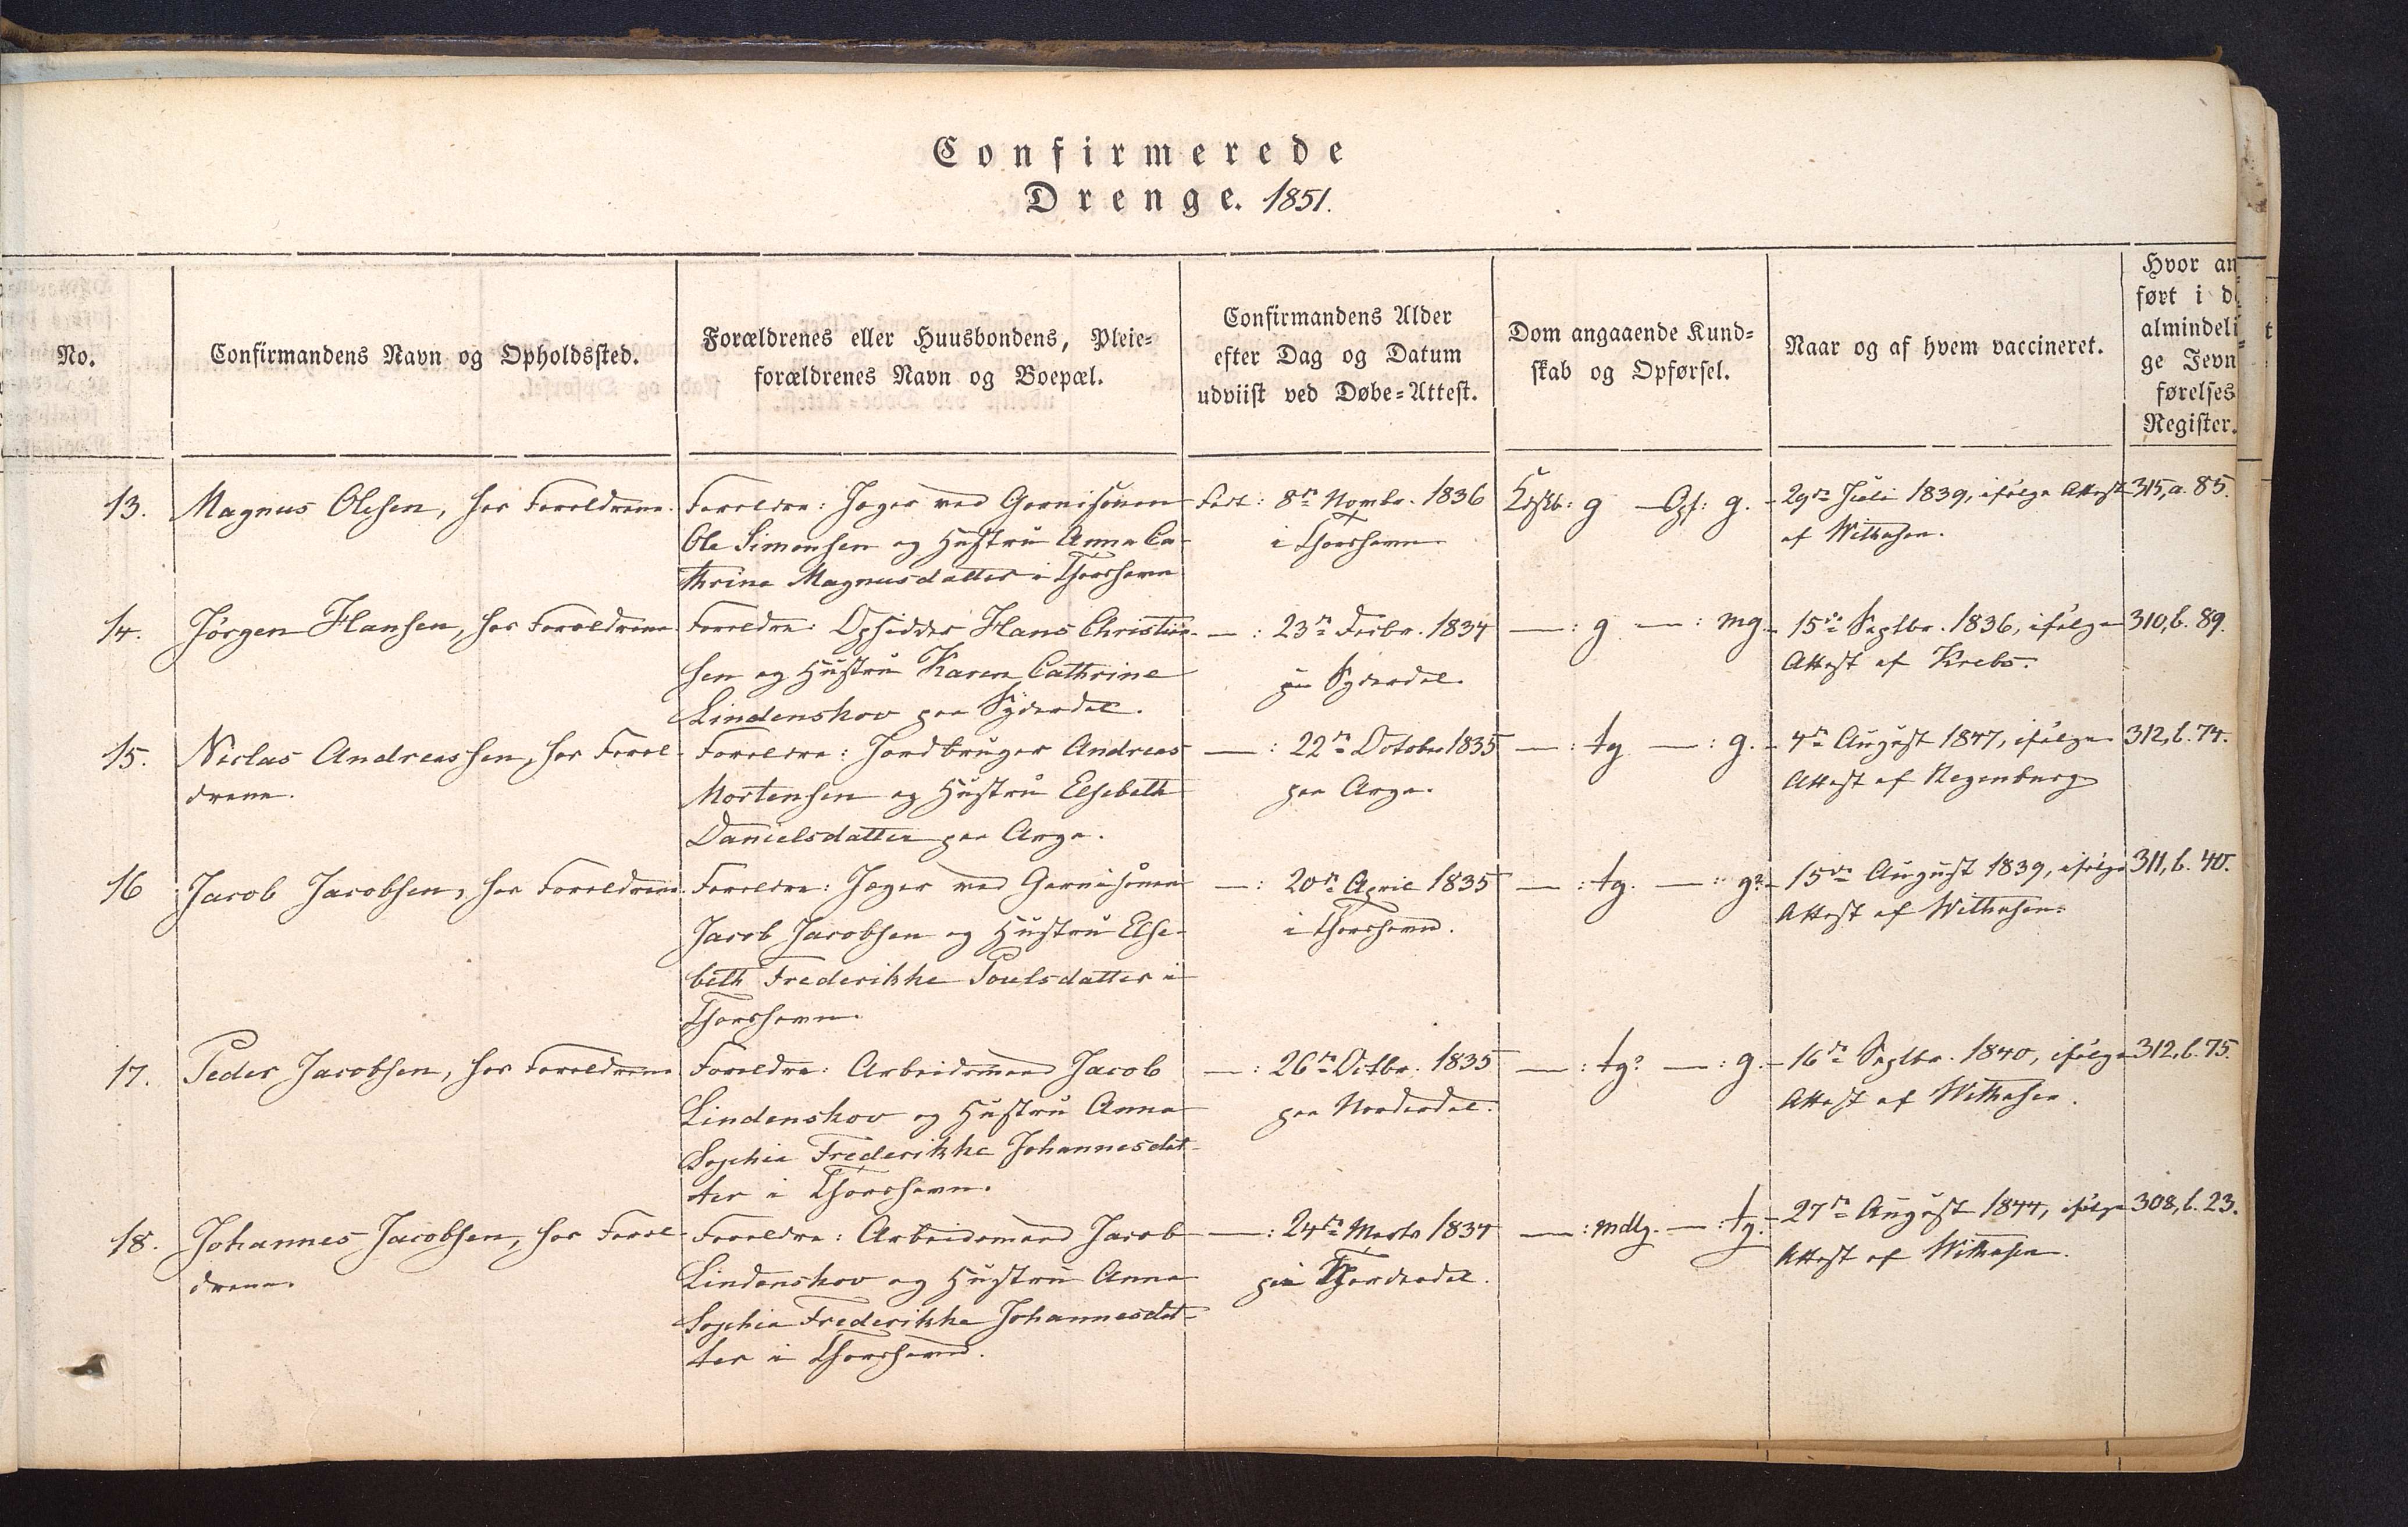 Confirmerede
Drenge. 1851.
No.
Confirmandens Navn og Opholdssted.
Forældrenes eller Huusbondens, Pleie-
forældrenes Navn og Boepæl.
Confirmandens Alder
efter Dag og Datum
udviist ved Døbe-Attest.
Dom angaaende Kund-
skab og Opførsel.
Naar og af hvem vaccineret.
Hvor an
ført i d
almindeli
ge Jevn
førelses
Register.
13.
Magnus Olesen, hos Forældrene.
Forældre: Jæger ved Garnisonen
Ole Simonsen og Hustru Anna Ca-
thrina Magnusdatter i Thorshavn
Født: 8de Novmbr. 1836
i Thorshavn
Kdskb: g - Opf: g.
29de Juli 1839, ifølge Attest
af Withusen.
315, a. 85.
14.
Jörgen Hansen, hos Forældrene
Forældre: Opsidder Hans Christian-
sen og Hustru Karen Cathrine
Lindenskov paa Syderdal.
— : 23de Febr. 1834
paa Syderdal.
— : g — : mg.
15de Septbr. 1836, ifølge
Attest af Krebs.
310, b. 89.
15.
Niclas Andreassen, hos Foræl-
drene.
Forældre: Jordbruger Andreas
Mortensen og Hustru Elsebeth
Danielsdatter paa Arge.
— : 22de October 1835
paa Arge.
— : tg — : g.
4de August 1847, ifølge
Attest af Regenburg
312, b. 74.
16
Jacob Jacobsen, hos Forældrene.
Forældre: Jæger ved Garnisonen
Jacob Jacobsen og Hustru Else-
beth Frederikke Poulsdatter i
Thorshavn.
— : 20de April 1835
i Thorshavn.
— : tg. — : g?
15de August 1839, ifølge
Attest af Withusen.
311, b. 40.
17.
Peder Jacobsen, hos Forældrene
Forældre: Arbeidsmand Jacob
Lindenskov og Hustru Anna
Sophia Frederikke Johannesdat-
ter i Thorshavn.
— : 26de Octbr. 1835
paa Norderdal.
— : tg? — : g.
16de Septbr. 1840, ifølge
Attest af Withusen.
312, b. 75.
18.
Johannes Jacobsen, hos Foræl-
drene.
Forældre: Arbeidsmand Jacob
Lindenskov og Hustru Anna
Sophia Frederikke Johannesdat-
ter i Thorshavn.
— : 24de Marts 1834
paa
— : mdlg. — : tg.
27de August 1844, ifølge
Attest af Withusen.
308, b. 23.